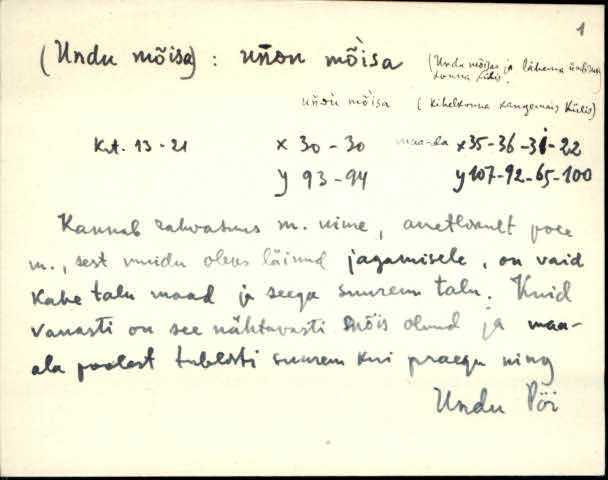 1
(Undu mõisa) : uñdu mõ̀isa (Undu mõisas ja lähema ümbrus-
konna külis.
uñdù mõ̀isa (kihelkonna kaugemais külis)
Krt. 13-21 x 30-30 maa-ala x 35-36-31-22
y 93-94 y 107-92-65-100
Kannab rahvasuus m. nime, ametlikult pole
m., sest muidu oleks läinud jagamisele, on vaid
kahe talu maad ja seega suurem talu. Kuid
vanasti on see nähtavasti mõis olnud ja maa-
ala poolest tublisti suurem kui praegu ning
Undu Pöi